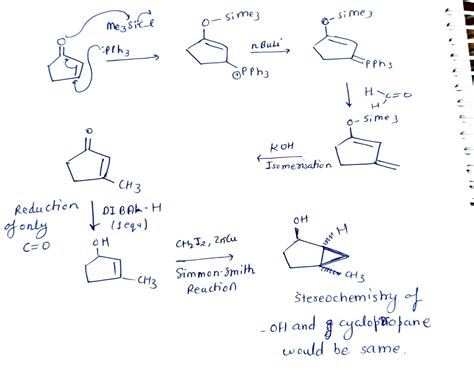 O
Me3Si-Cl
:PPh3
O-sime3
⊕PPh3
nBuli
O-sime3
PPh3
H
H
C=O
O-sime3
KOH
Isomerisation
O
CH3
Reduction
of only
C=O
DIBAL-H
(1equ)
OH
CH3
CH2I2, ZnCu
Simmon-Smith
Reaction
OH
H
CH3
Stereochemistry of
-OH and cyclopropane
would be same.